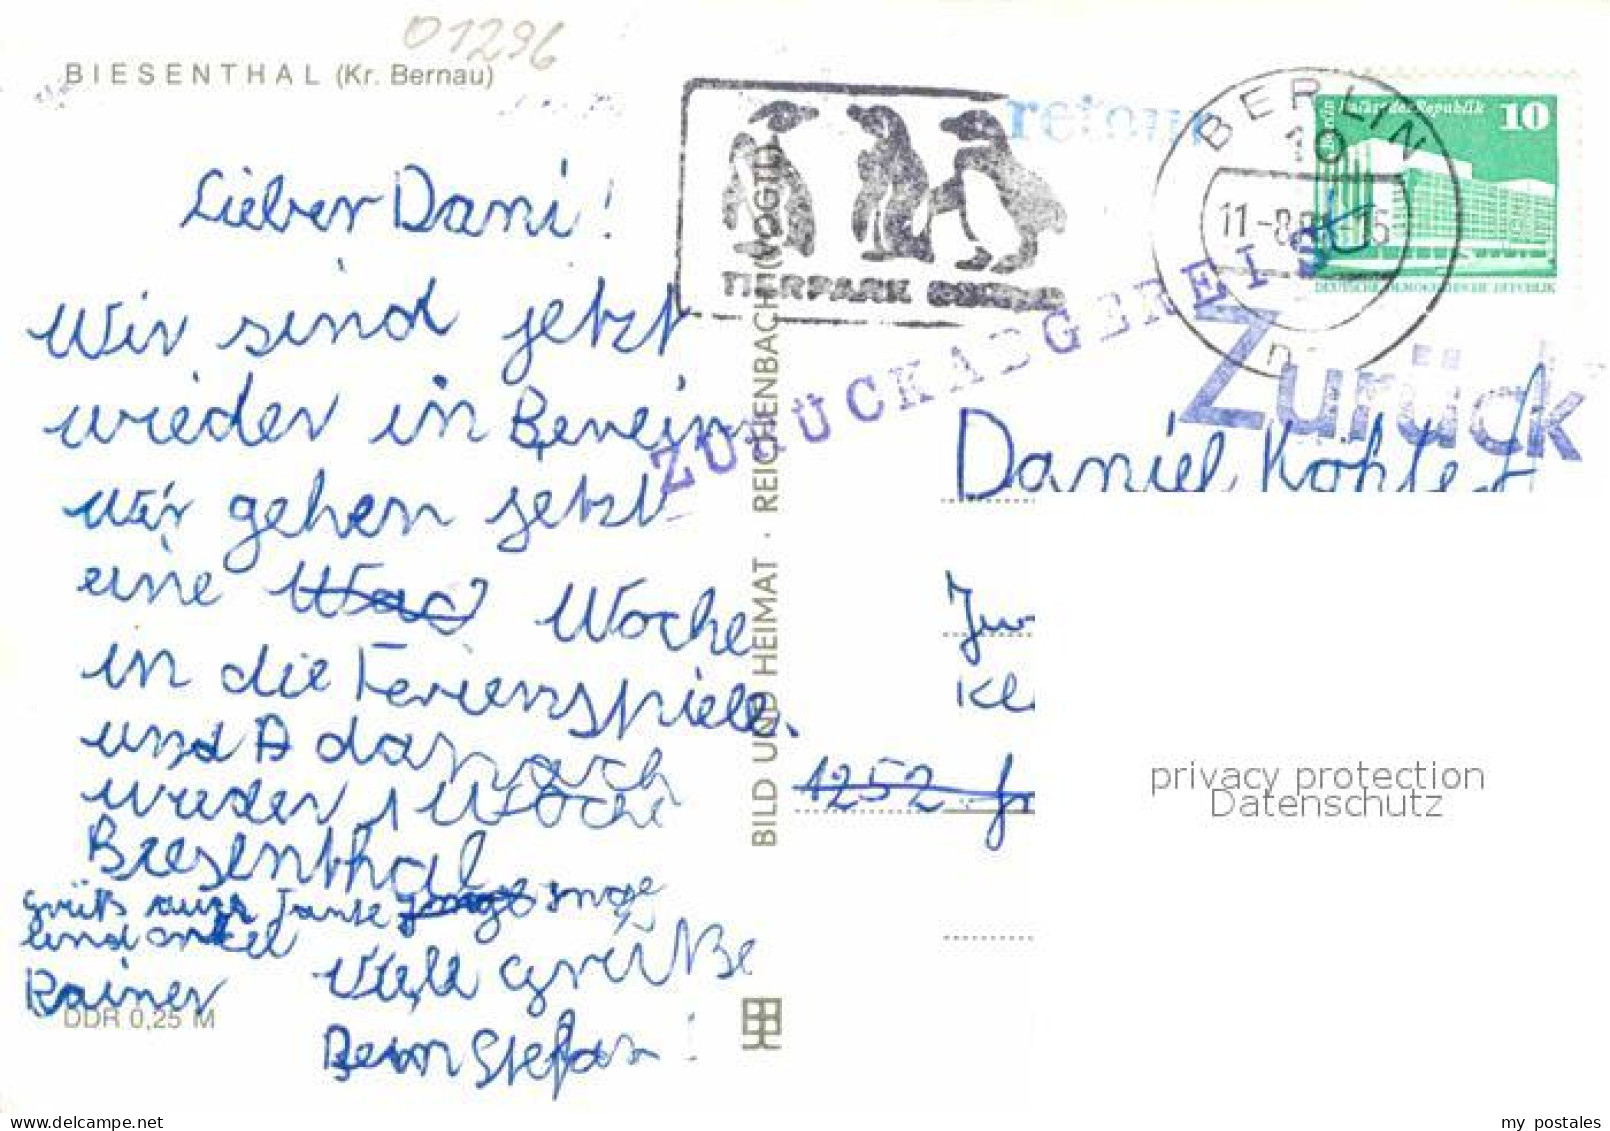 01296
BIESENTHAL (Kr. Bernau)
retour
TIERPARK BERLIN
BERLIN
10
11-8
-15
Berlin Palast der Republik 10
DEUTSCHE DEMOKRATISCHE REPUBLIK
ZURÜCK ABGEREIST
Zurück
Lieber Dani!
Wir sind jetzt
wieder in
Wir gehen jetzt
eine Woche
in die Ferienspiele.
und danach
wieder 1 Woche
Biesenthal
Grüß Tante
und onkel
Rainer
Viele Grüße
Dein Stefan!
DDR 0,25 M
BILD UND HEIMAT · REICHENBACH (VOGTL)
Daniel Köhler
Kl
1252
privacy protection
Datenschutz
my postales